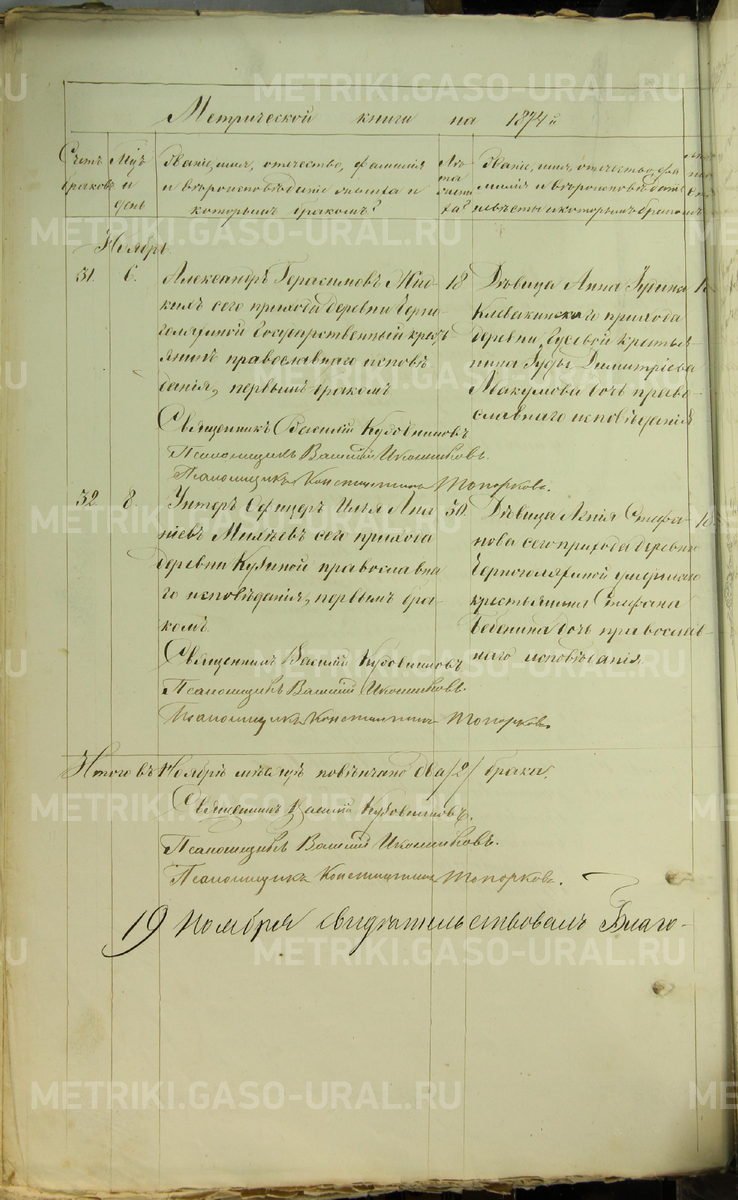 Метрической книги на 1874 й
Счетъ браковъ.
Мѣц и день
Званіе, имя, отечество, фамилія
и вѣроисповѣданіе жениха и
которымъ бракомъ?
Лѣта жениха?
Званіе, имя, отечество, фа
милія и вѣроисповѣданіе
невѣсты и которымъ бракомъ
Ноябрь.
31. 6. Александръ Герасимовъ Жид 18
кихъ сего прихода деревни Черно
голяхиной Государственный кресть
янинъ православнаго исповѣ
данія, первымъ бракомъ
Священникъ Василій Кудовниковъ
Псаломщикъ Василій Иконниковъ.
Псаломщикъ Константинъ Топорковъ.
Дѣвица Анна Іудина
Клевакинскаго прихода
деревни Гусевой крестья
нина Іуды Димитріева
Авакумова дочь право
славнаго исповѣданія
32. 8. Унтеръ Офицеръ Илья
сего прихода
деревни православна
го исповѣданія, первымъ бра
комъ.
Священникъ Василій Кудовниковъ
Псаломщикъ Василій Иконниковъ.
Псаломщикъ Константинъ Топорковъ
Дѣвица Агнія Стефа
нова сего прихода деревни
Черноголяхиной умершаго
крестьянина Стефана
дочь православ
наго исповѣданія.
Итого въ Ноябрѣ мѣсяцѣ повѣнчано два /2/ брака.
Священникъ Василій Кудовниковъ.
Псаломщикъ Василій Иконниковъ.
Псаломщикъ Константинъ Топорковъ.
19 Ноября свидѣтельствовалъ Благо-
METRIKI.GASO-URAL.RU